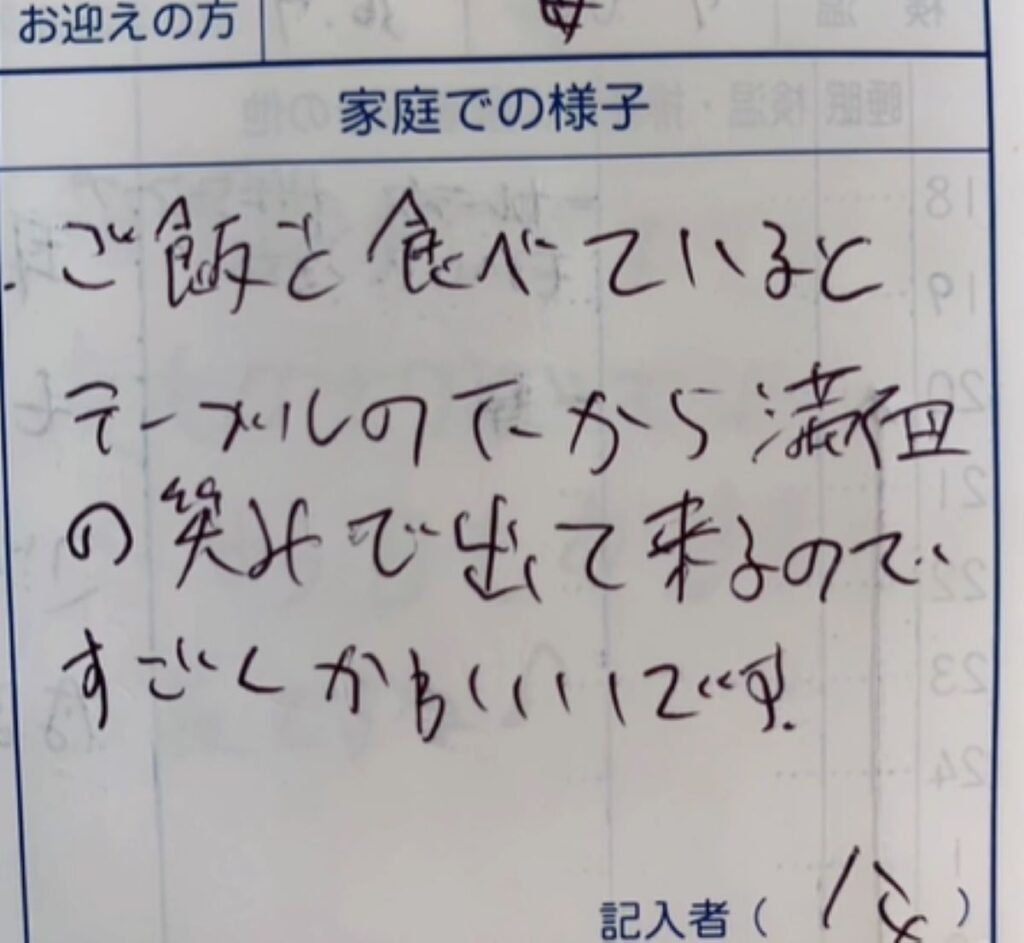 お迎えの方 母
家庭での様子
・ご飯を食べていると
テーブルの下から満面
の笑みで出て来るので
すごくかわいいです.
記入者( )